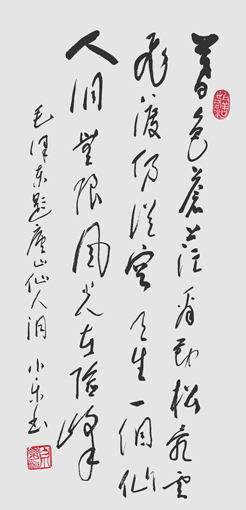 暮色蒼茫看勁松亂雲
飛渡仍從容天生一個仙
人洞無限風光在險峰
毛澤東題廬山仙人洞